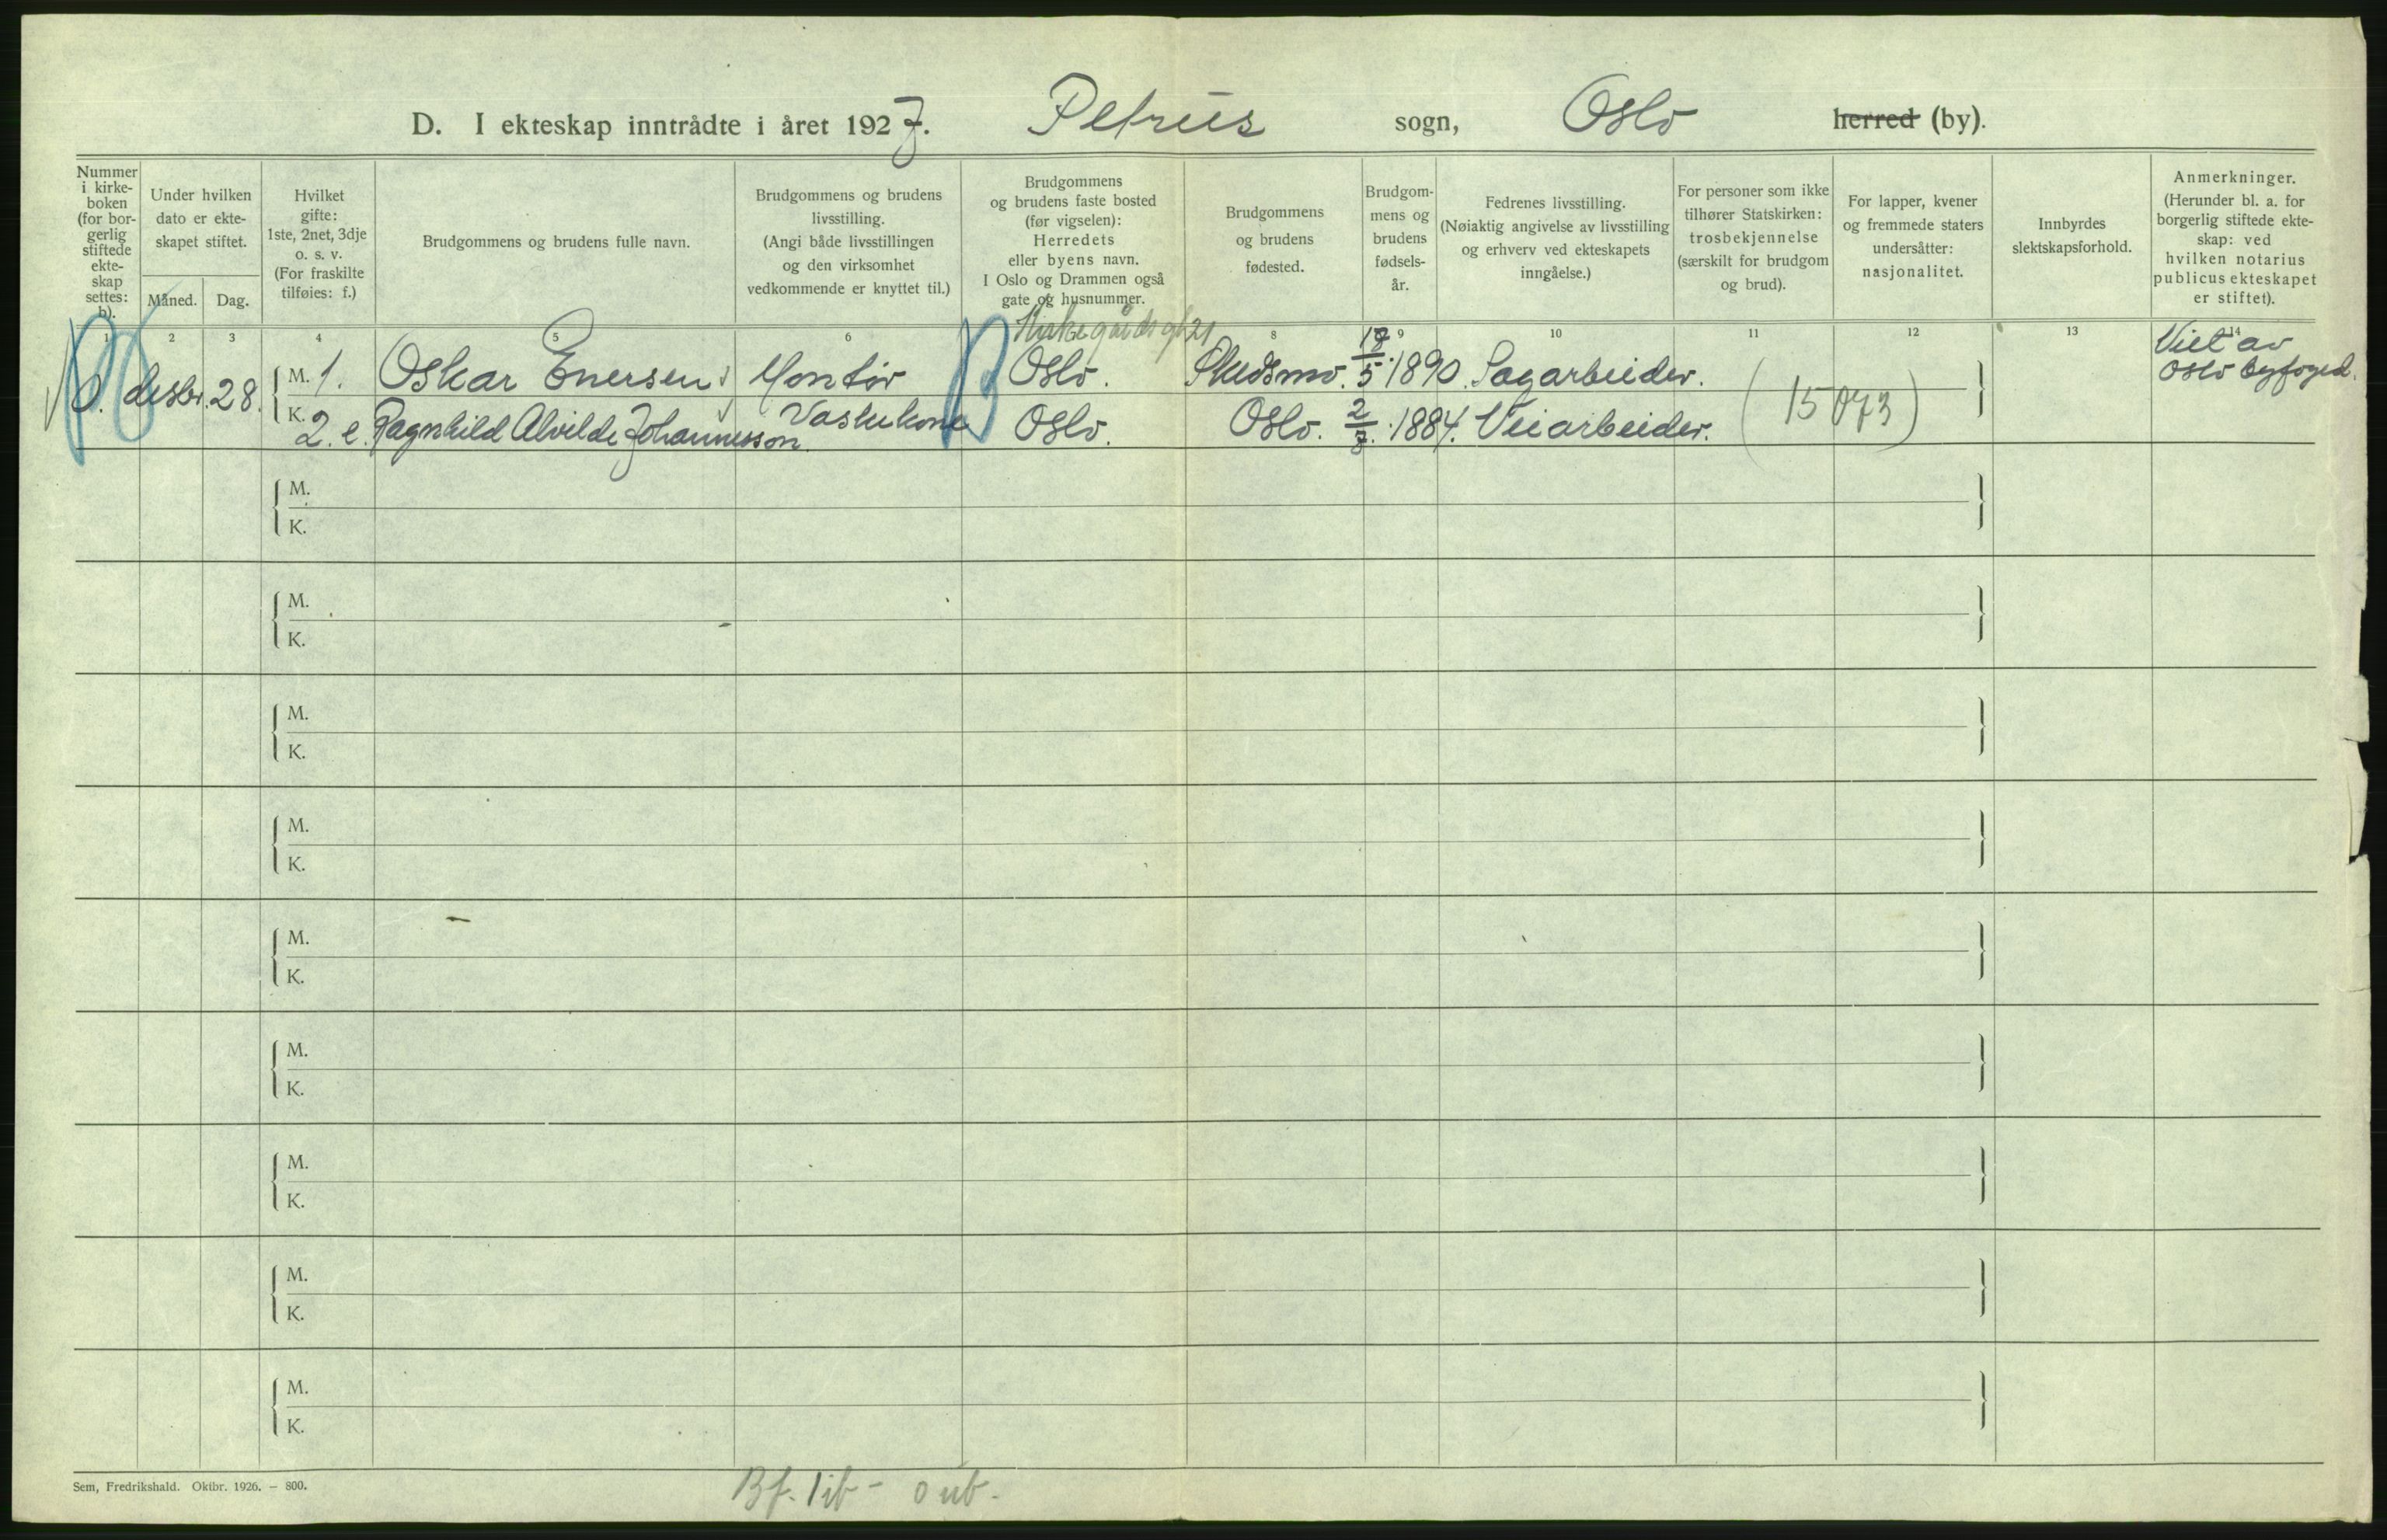 D. I ekteskap inntrådte i året 1927. Petrus sogn, Oslo herred (by).
Nummer
i kirke-
boken
(for bor-
gerlig
stiftede
ekte-
skap
settes:
b).
Under hvilken
dato er ekte-
skapet stiftet.
Måned. Dag.
Hvilket
gifte:
1ste, 2net, 3dje
o. s. v.
(For fraskilte
tilføies: f.)
Brudgommens og brudens fulle navn.
Brudgommens og brudens
livsstilling.
(Angi både livsstillingen
og den virksomhet
vedkommende er knyttet til.)
Brudgommens
og brudens faste bosted
(før vigselen):
Herredets
eller byens navn.
I Oslo og Drammen også
gate og husnummer.
Brudgommens
og brudens
fødested.
Brudgom-
mens og
brudens
fødsels-
år.
Fedrenes livsstilling.
(Nøiaktig angivelse av livsstilling
og erhverv ved ekteskapets
inngåelse.)
For personer som ikke
tilhører Statskirken:
trosbekjennelse
(særskilt for brudgom
og brud).
For lapper, kvener
og fremmede staters
undersåtter:
nasjonalitet.
Innbyrdes
slektskapsforhold.
Anmerkninger.
(Herunder bl. a. for
borgerlig stiftede ekte-
skap: ved
hvilken notarius
publicus ekteskapet
er stiftet).
1 2 3 4 5 6 8 9 10 11 12 13 14
Kirkegårdsgt 21
desbr. 28. M. 1. Oskar Enersen Montør Oslo. Skedsmo. 18/5. 1890. Sagarbeider. Viet av
Oslo byfoged.
K. 2. e. Ragnhild Alvilde Johannesson Vaskekone Oslo. Oslo. 2/8. 1884. Veiarbeider. (15073)
M.
K.
M.
K.
M.
K.
M.
K.
M.
K.
M.
K.
M.
K.
M.
K.
M.
K.
Sem, Fredrikshald. Oktbr. 1926. — 800.
Bf. 1 ib - 0 ub.